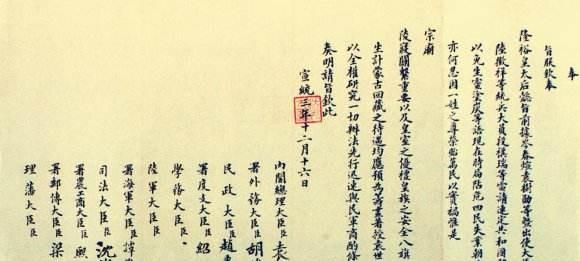 奉
旨朕欽奉
隆裕皇太后懿旨前據岑春煊袁樹勛等暨出使大
陸徵祥等統兵大員段祺瑞等電請速定共和國
以免生靈塗炭等語現在時局阽危四民失業朝
亦何忍因一姓之尊榮貽萬民以實禍惟是
宗廟
陵寢關繫重要以及皇室之優禮皇族之安全八旗
生計蒙古回藏之待遇均應預為籌畫著授袁世
以全權研究一切辦法先行迅速與民軍商酌條
奏明請旨欽此
宣統三年十二月十六日
內閣總理大臣臣袁
署外務大臣臣胡
民政大臣臣趙
署度支大臣臣紹
學務大臣臣
陸軍大臣臣
署海軍大臣臣譚
司法大臣臣沈
署農工商大臣臣熙
署郵傳大臣臣梁
理藩大臣臣